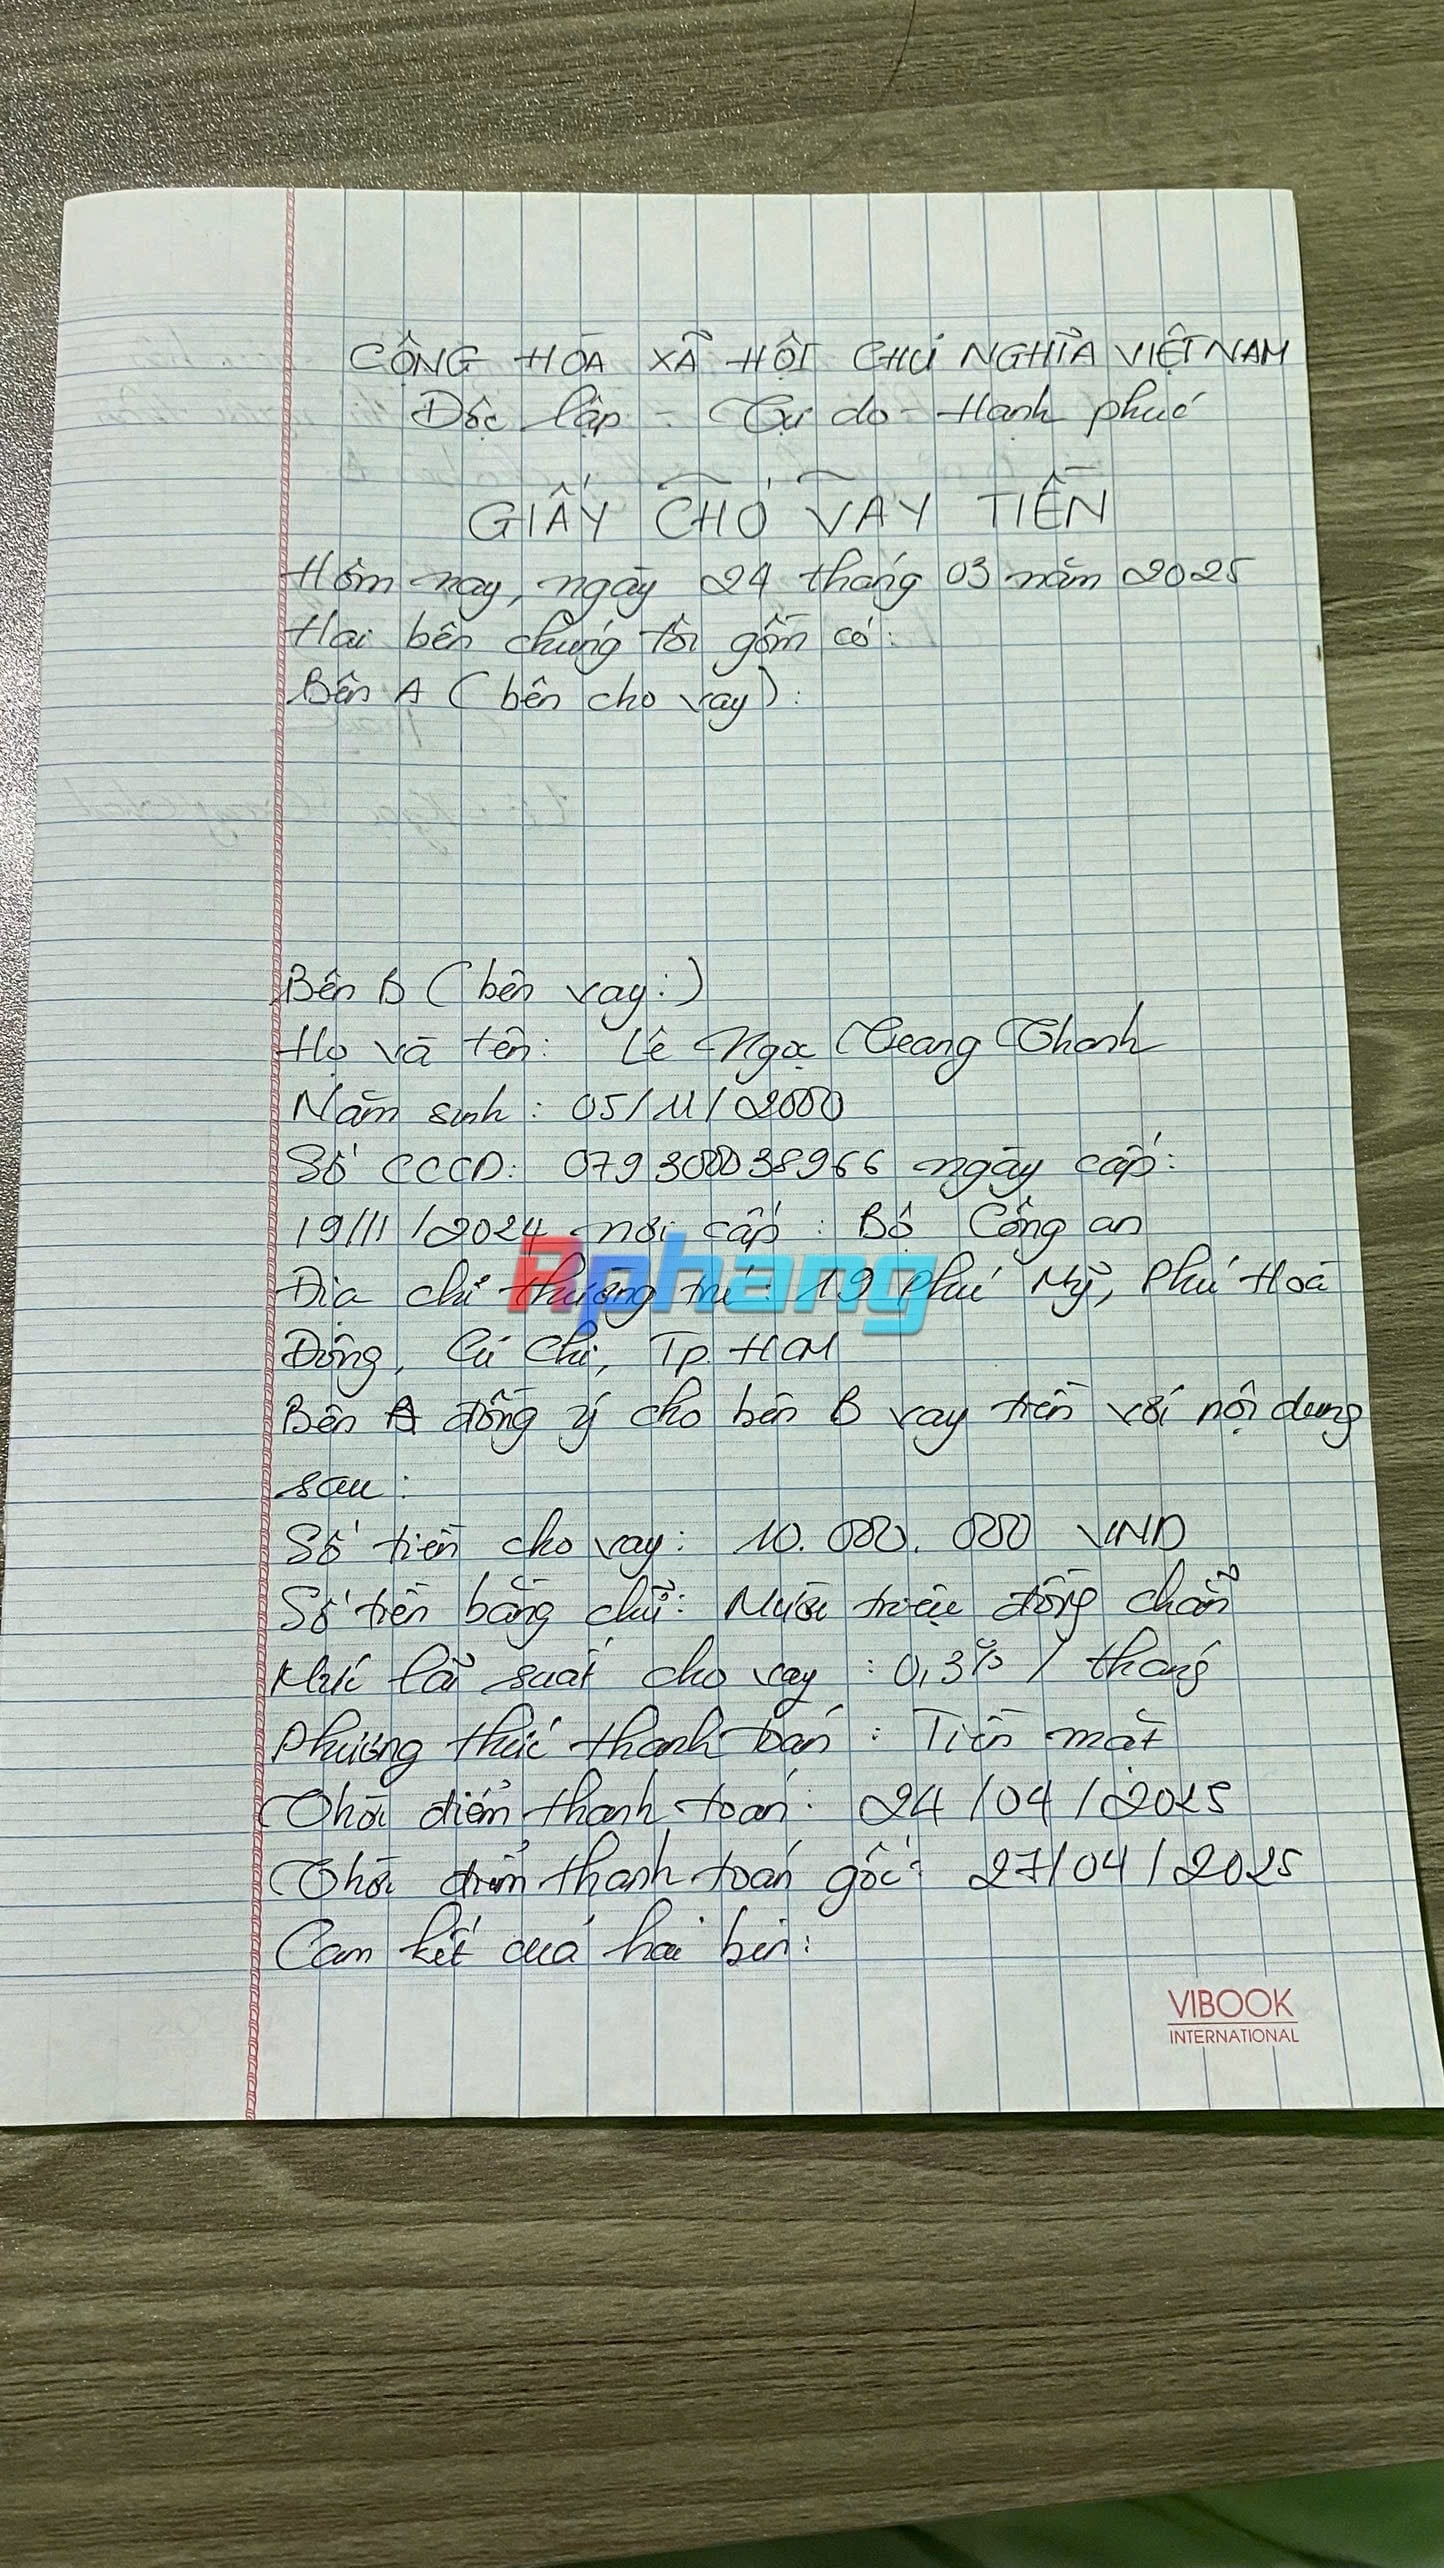 CỘNG HÒA XÃ HỘI CHỦ NGHĨA VIỆT NAM
Độc lập - Tự do - Hạnh phúc
GIẤY CHO VAY TIỀN
Hôm nay, ngày 24 tháng 03 năm 2025
Hai bên chúng tôi gồm có:
Bên A (bên cho vay):
Bên B (bên vay:)
Họ và tên: Lê Ngọc Trang Thanh
Năm sinh: 05/11/2000
Số CCCD: 079300038966 ngày cấp:
19/11/2024 nơi cấp: Bộ Công an
Địa chỉ thường trú: 19 Phú Mỹ, Phú Hoà
Đông, Củ Chi, Tp. HCM
Bên A đồng ý cho bên B vay tiền với nội dung
sau:
Số tiền cho vay: 10.000.000 VND
Số tiền bằng chữ: Mười triệu đồng chẵn
Mức lãi suất cho vay: 0,3% / tháng
Phương thức thanh toán: Tiền mặt
Thời điểm thanh toán: 24/04/2025
Thời điểm thanh toán gốc: 27/04/2025
Cam kết của hai bên:
Aphang
VIBOOK
INTERNATIONAL